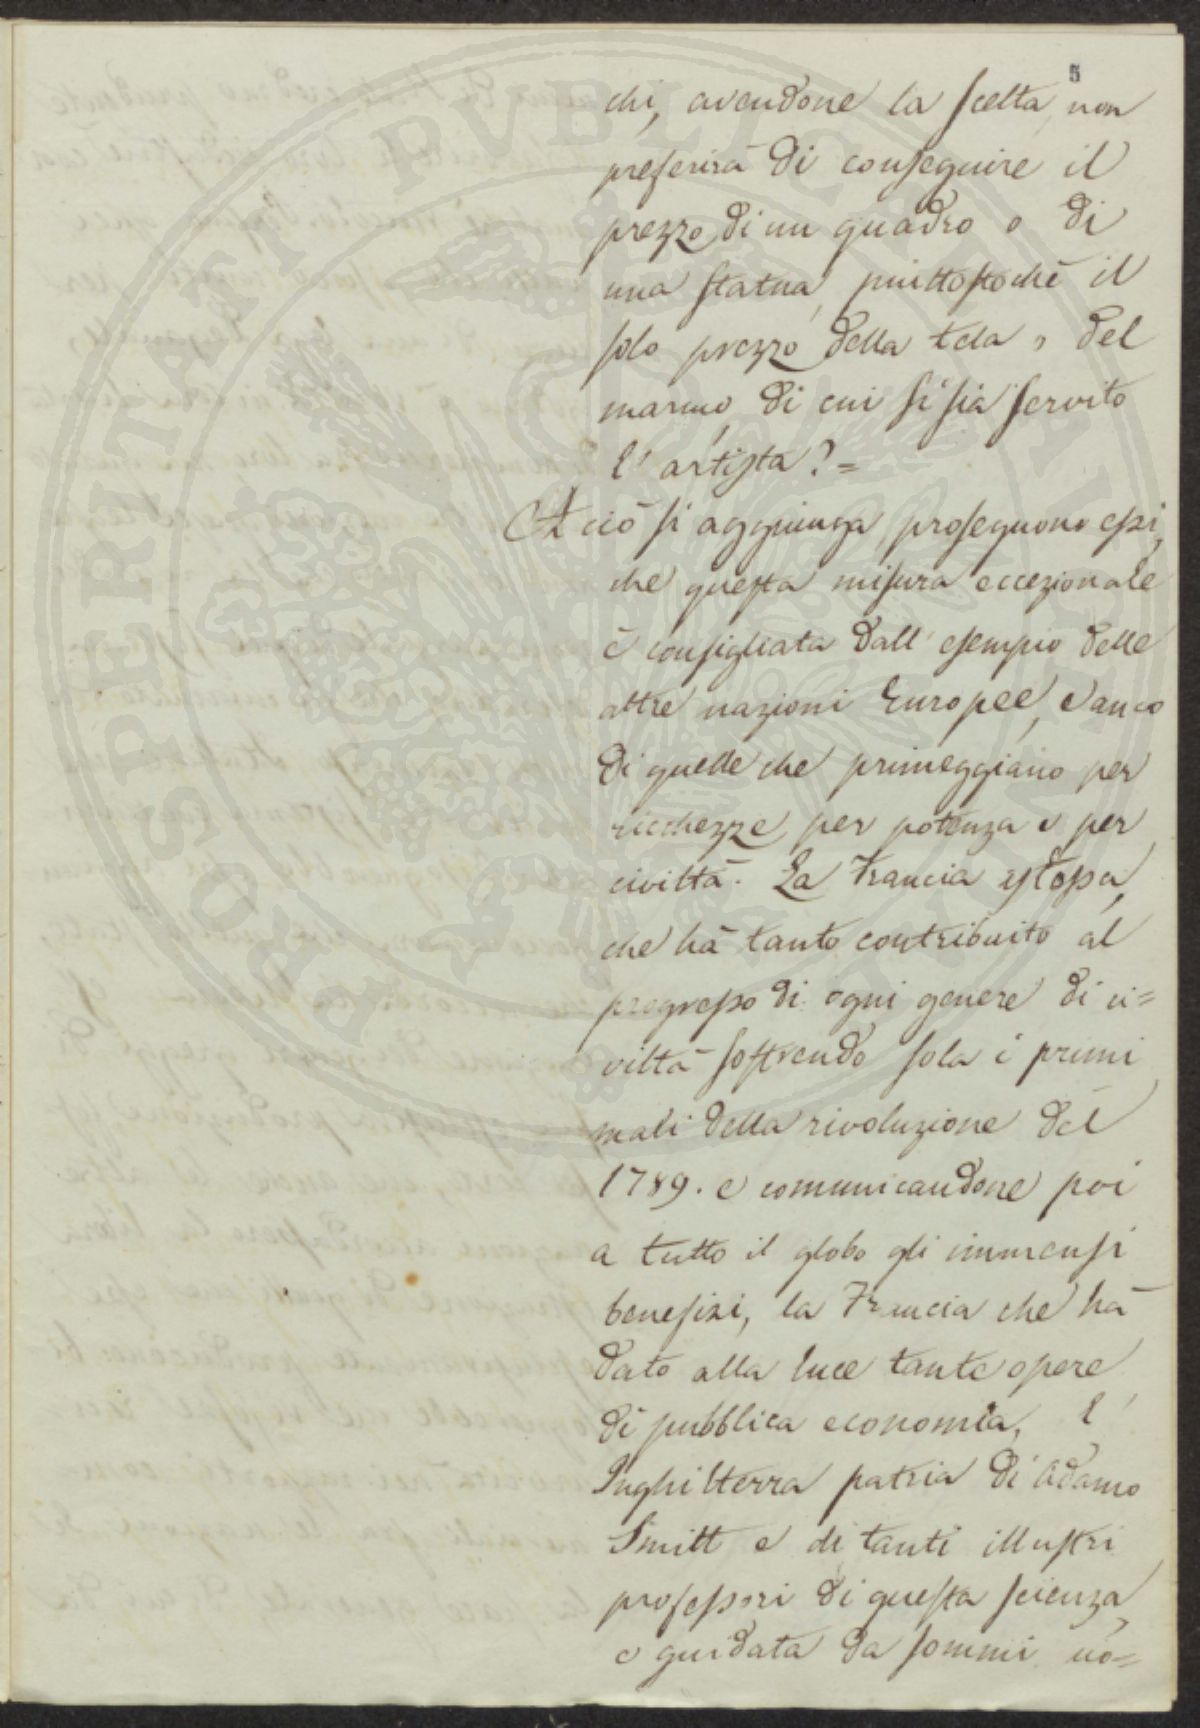 5
chi, avendone la scelta, non
preferirà di conseguire il
prezzo di un quadro o di
una statua, piuttostochè il
solo prezzo della tela, o del
marmo, di cui si sia servito
l'artista?=
A ciò si aggiunga, proseguono essi,
che questa misura eccezionale
è consigliata dall'esempio delle
altre nazioni Europee, e anco
di quelle che primeggiano per
ricchezze, per potenza e per
civiltà. La Francia istessa,
che hà tanto contribuito al
progresso di ogni genere di ci=
viltà soffrendo sola i primi
mali della rivoluzione del
1789. e comunicandone poi
a tutto il globo gli immensi
benefizi, la Francia che hà
dato alla luce tante opere
di pubblica economia, l'
Inghilterra patria di Adamo
Smitt e di tanti illustri
professori di questa scienza,
e guidata da sommi uo=
PROSPERITATI PVBLICAE AVGENDAE